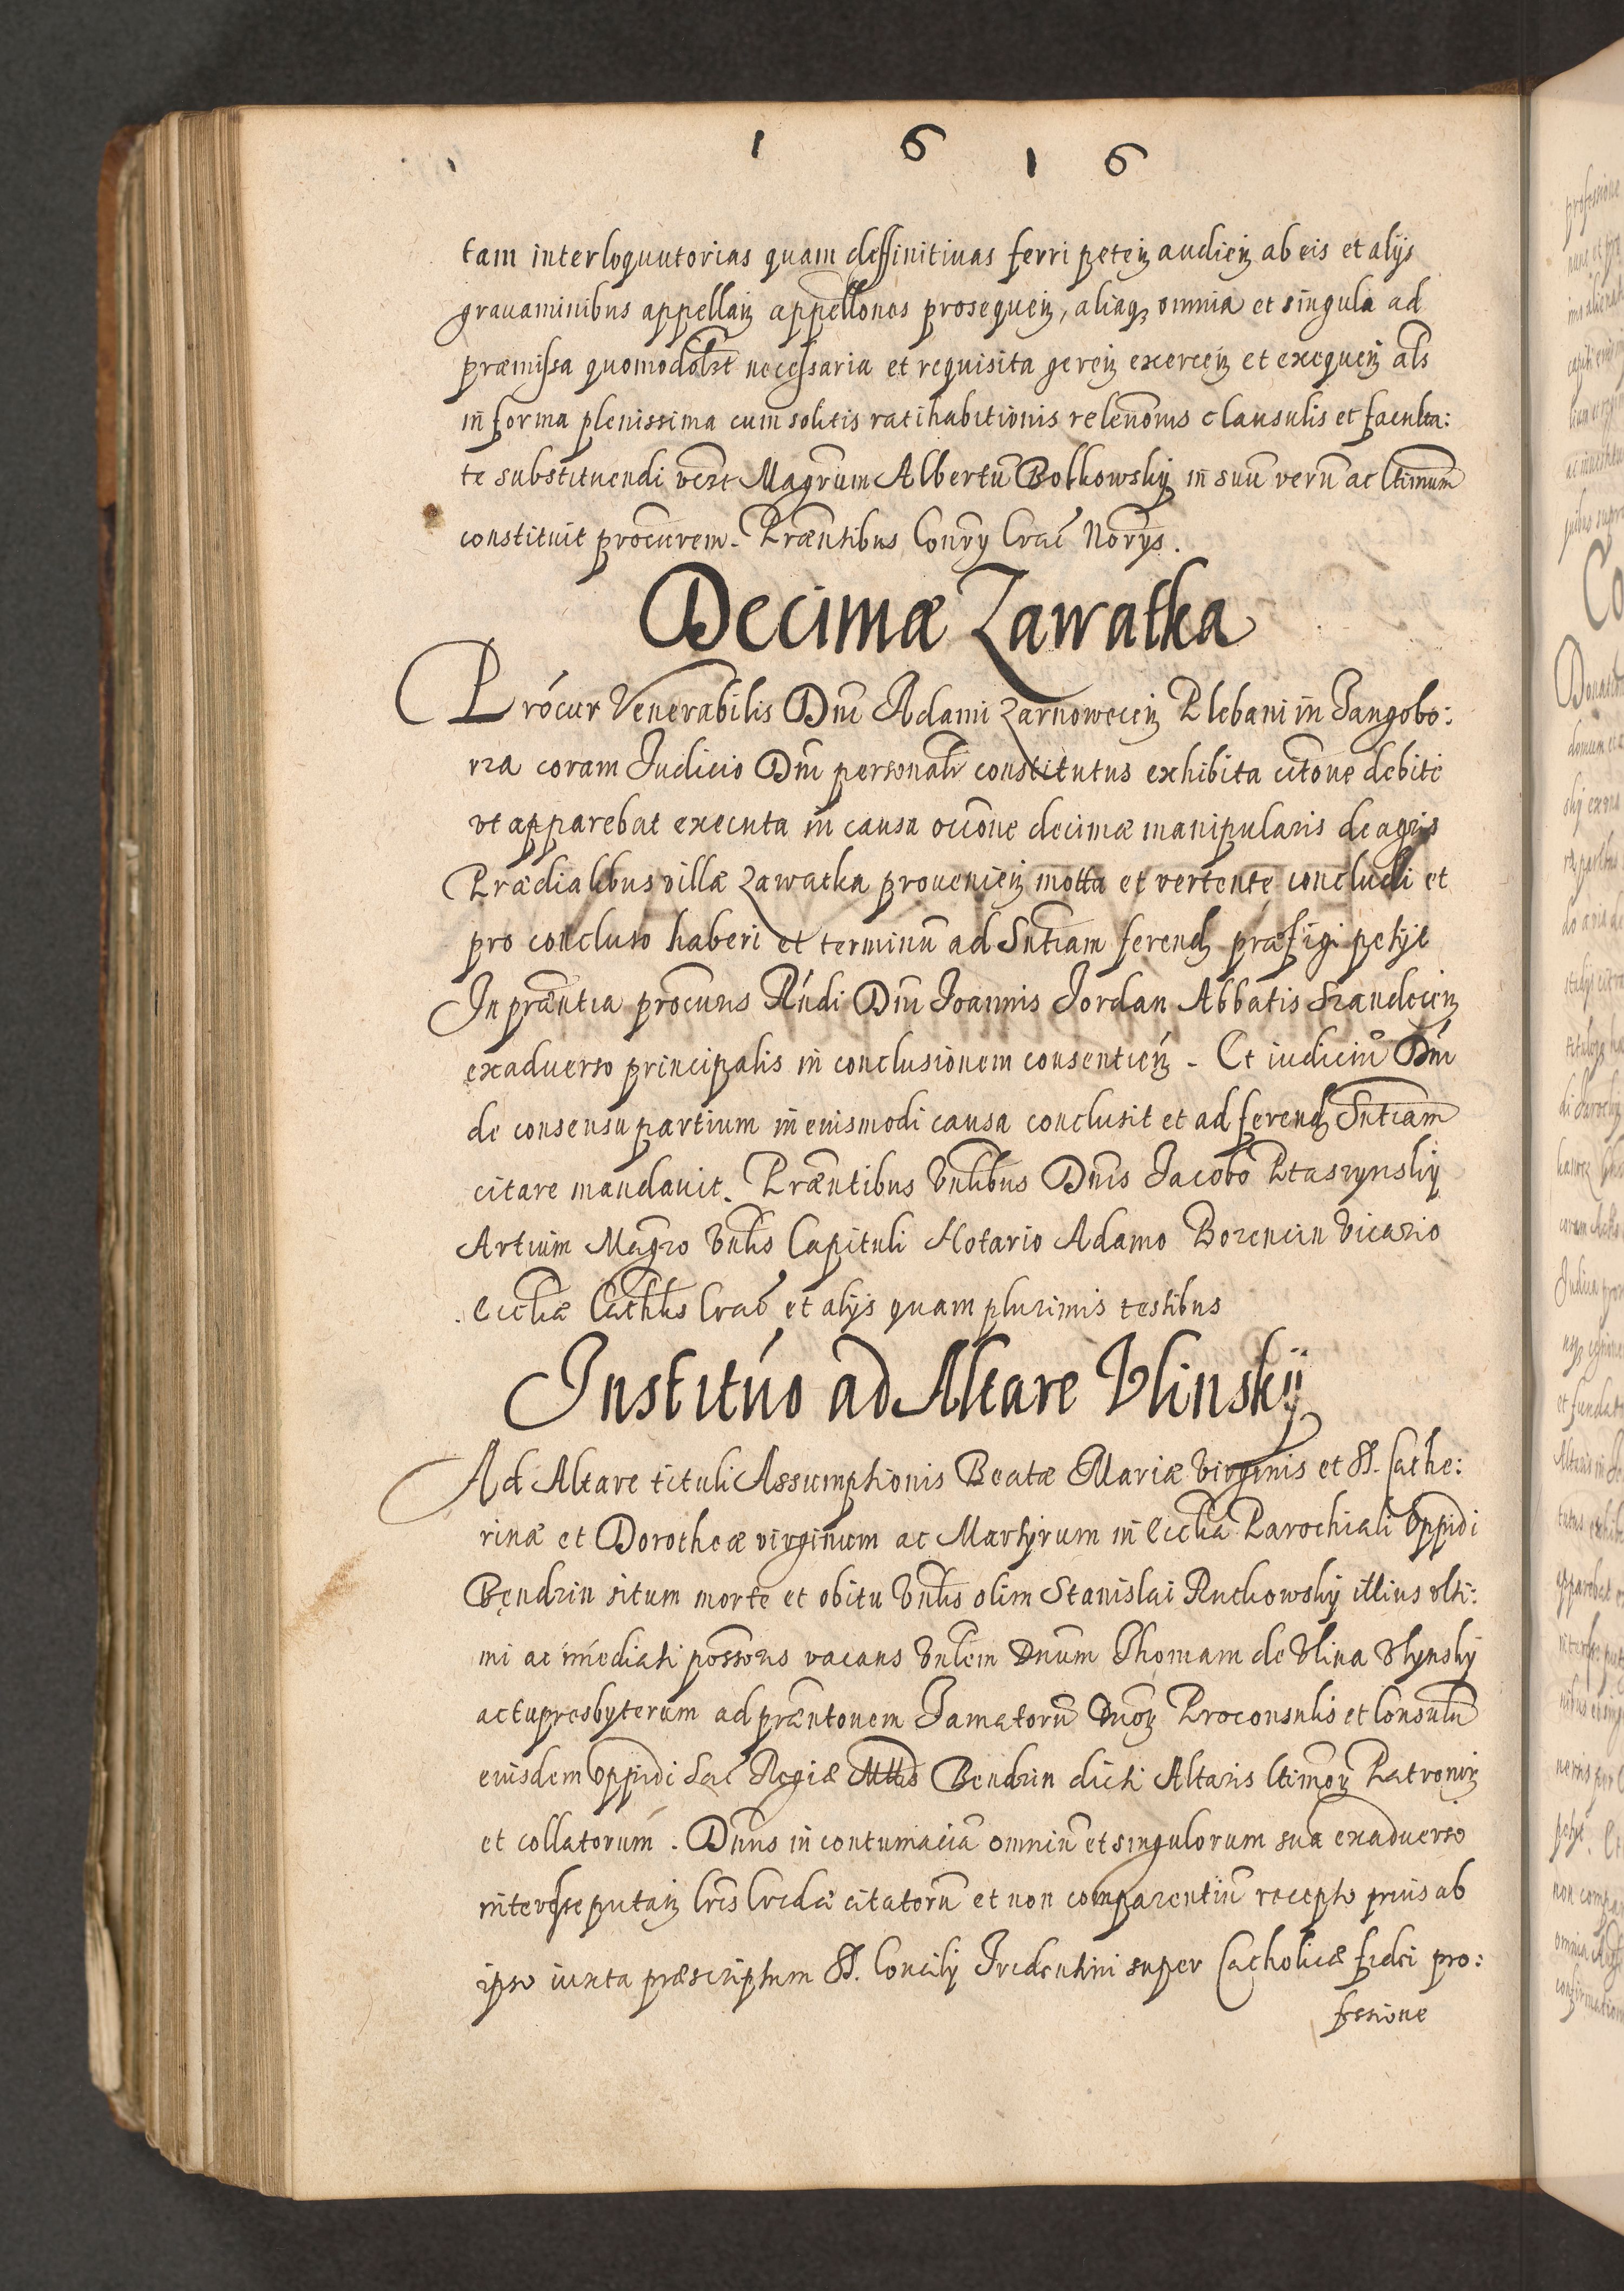 1 6 1 6
tam interloquutorias quam deffinitiuas ferri peteñ audieñ ab eis et alijs
grauaminibus appellañ appellones prosequeñ, aliaq, omnia et singula ad
præmissa quomodolzt necessaria et requisita gereñ exerceñ et exequeñ als
in forma plenissima cum solitis ratihabitionis releuonis clausulis et faculta:
te substituendi vczt Magrum Albertū Bolkowskij in suū verū ac ltimum
constituit procurem. Præntibus Conry Crac Norys.
Decimæ Zawatka
Procur Venerabilis Dni Adami Zarnoweceñ Plebani in Jangobo:
rza coram Judicio Dni personalr constitutus exhibita citone debite
vt apparebat executa in causa occone decimæ manipularis de agris
Prædialibus villæ Zawatka prouenieñ motta et vertente concludi et
pro concluso haberi et terminū ad Sntiam ferend præfigi petijt
In præntia procuris Rndi Dni Joannis Jordan Abbatis Szandeceñ
exaduerso principalis in conclusionem consentieñ. Et iudiciū Dni
de consensu partium in euismodi causa conclusit et ad ferend Sntiam
citare mandauit. Præntibus Vnlibus Dnis Jacobo Ptaszynskij
Artium Magro Vnlis Capituli Notario Adamo Bozencin Vicario
Eccliæ Cathlis Crac et alijs quam plurimis testibus
Institutio ad Altare Vlinskij
Ad Altare tituli Assumptionis Beatæ Mariæ Virginis et SS. Cathe:
rinæ et Dorotheæ virginum ac Martyrum in Ecclia Parochiali Oppidi
Bendzin situm morte et obitu Vnlis olim Stanislai Rutkowskij illius vlti:
mi ac imediati possoris vacans Vnlem Dnum Thomam de Vlina Vlynskij
actu presbyterum ad præntonem Famatorū Dnoȝ Proconsulis et Consulū
euisdem Oppidi Sac Regiæ Mttis Bendzin dicti Altaris ltimoȝ Patronoȝ
et collatorum. Dnus in contumaciā omniū et singulorum sua exaduerso
interesse putañ lris Credæ citatorū et non comparentiū recepto prius ab
ipso iuxta præscriptum SS. Concilij Tridentini super Catholicæ fidei pro:
fessione